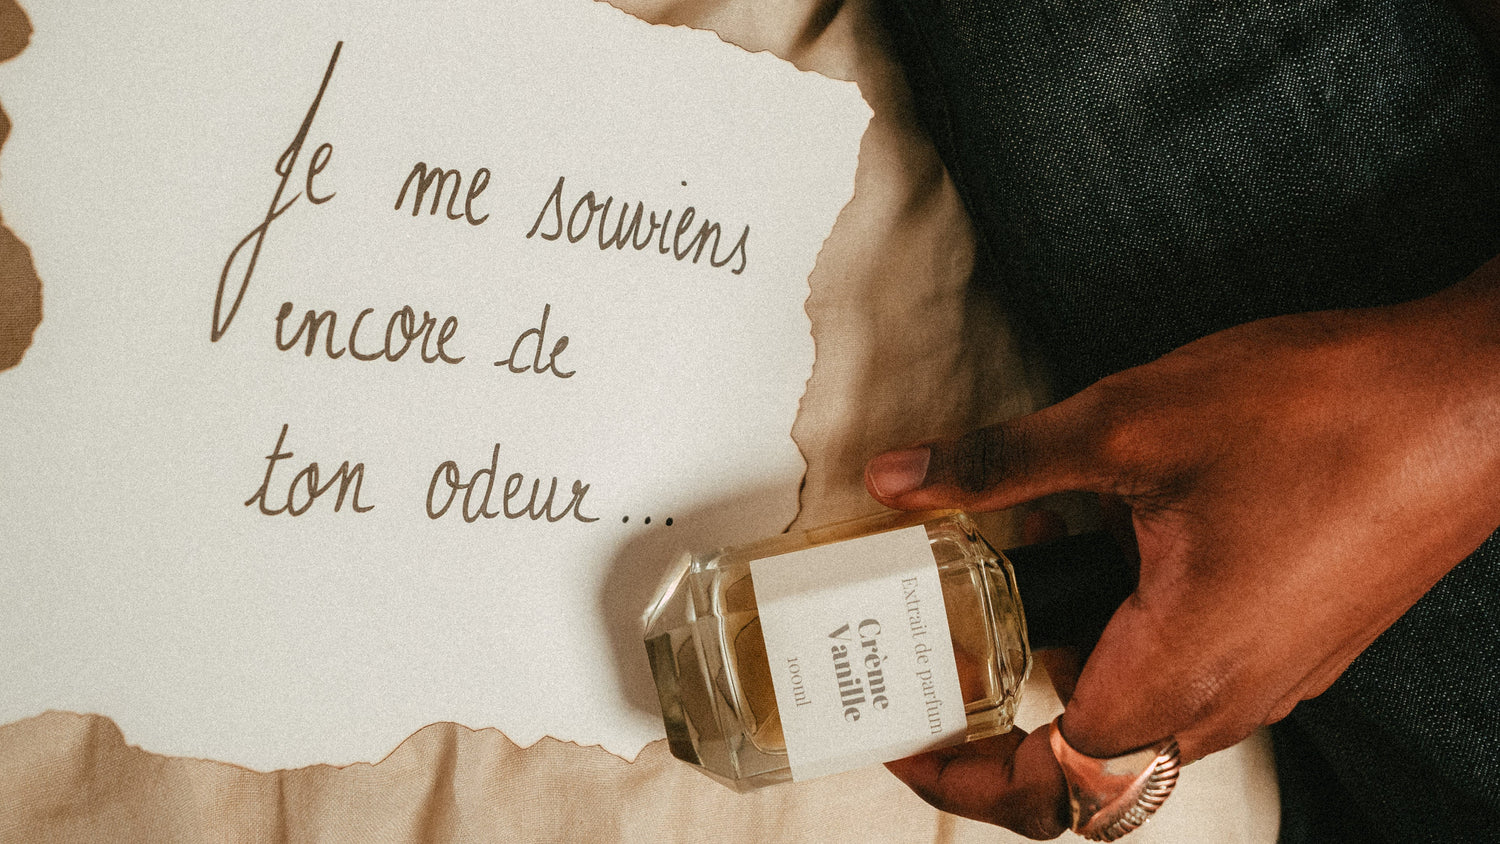 Je me souviens
encore de
ton odeur...
Extrait de parfum
Crème
Vanille
100ml